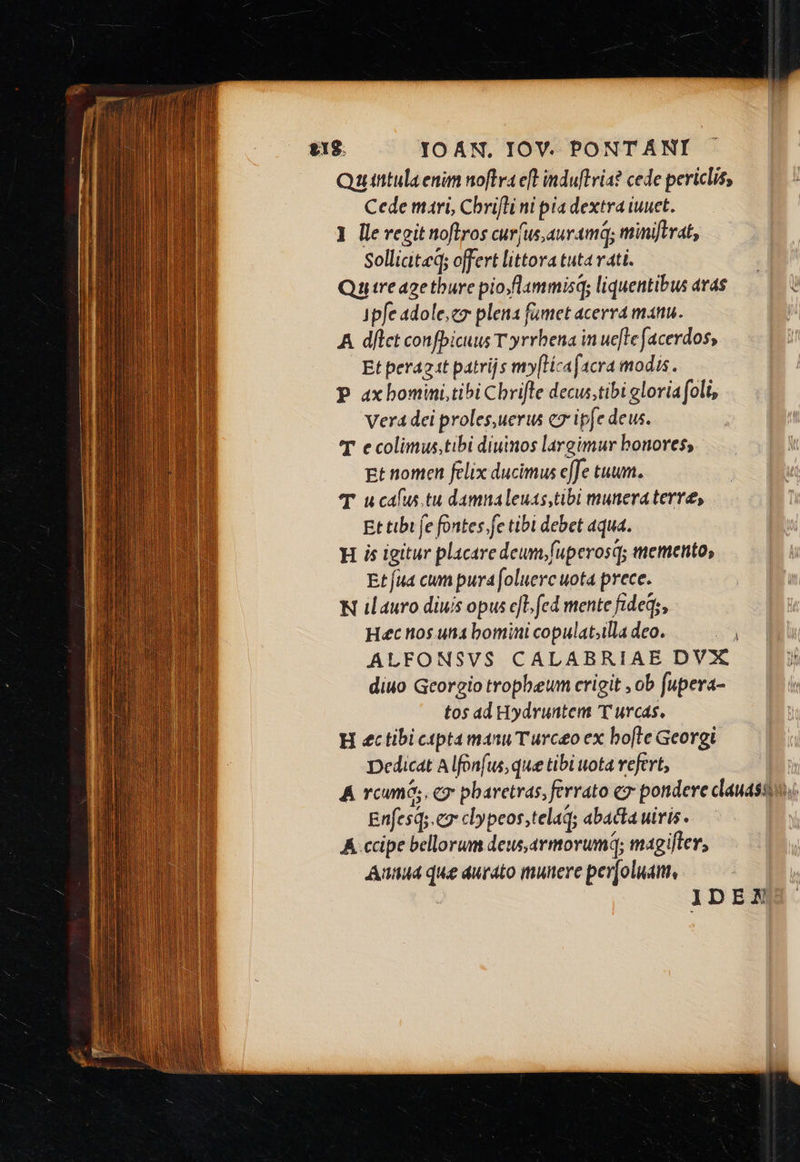 218. IOAN. IOV. PONTANI
Quantula enim noſtra eſt induſtria? cede periclis,
Cede mari, Chriſti ni pia dextra iuuet.
I lle regit noſtros curſus, auramq; miniſtrat,
Sollicitæq; offert littora tuta rati.
Quare age thure pio, flammisq; liquentibus aras
Ipſe adole, & plena fumet acerra manu.
A dſtet conſpicuus Tyrrhena in ueſte ſacerdos,
Et peragat patrijs myſtica ſacra modis.
P ax homini, tibi Chriſte decus, tibi gloria ſoli,
Vera dei proles, uerus & ipſe deus.
T e colimus, tibi diuinos largimur honores,
Et nomen felix ducimus eſſe tuum.
T u caſus, tu damna leuas, tibi munera terræ,
Et tibi ſe fontes, ſe tibi debet aqua.
H is igitur placare deum, ſuperosq; memento,
Et ſua cum pura ſoluere uota prece.
N il auro diuis opus eſt, ſed mente fideq;,
Hæc nos una homini copulat, illa deo.
ALFONSVS CALABRIAE DVX
diuo Georgio trophæum erigit, ob ſupera-
tos ad Hydruntem Turcas.
H æc tibi capta manu Turcæo ex hoſte Georgi
Dedicat Alfonſus, quæ tibi uota refert,
A rcumq;, & pharetras, ferrato & pondere clauas
Enſesq;, & clypeos, telaq; abacta uiris.
A ccipe bellorum deus, armorumq; magiſter,
Annua quæ aurato munere perſoluam,
IDEM